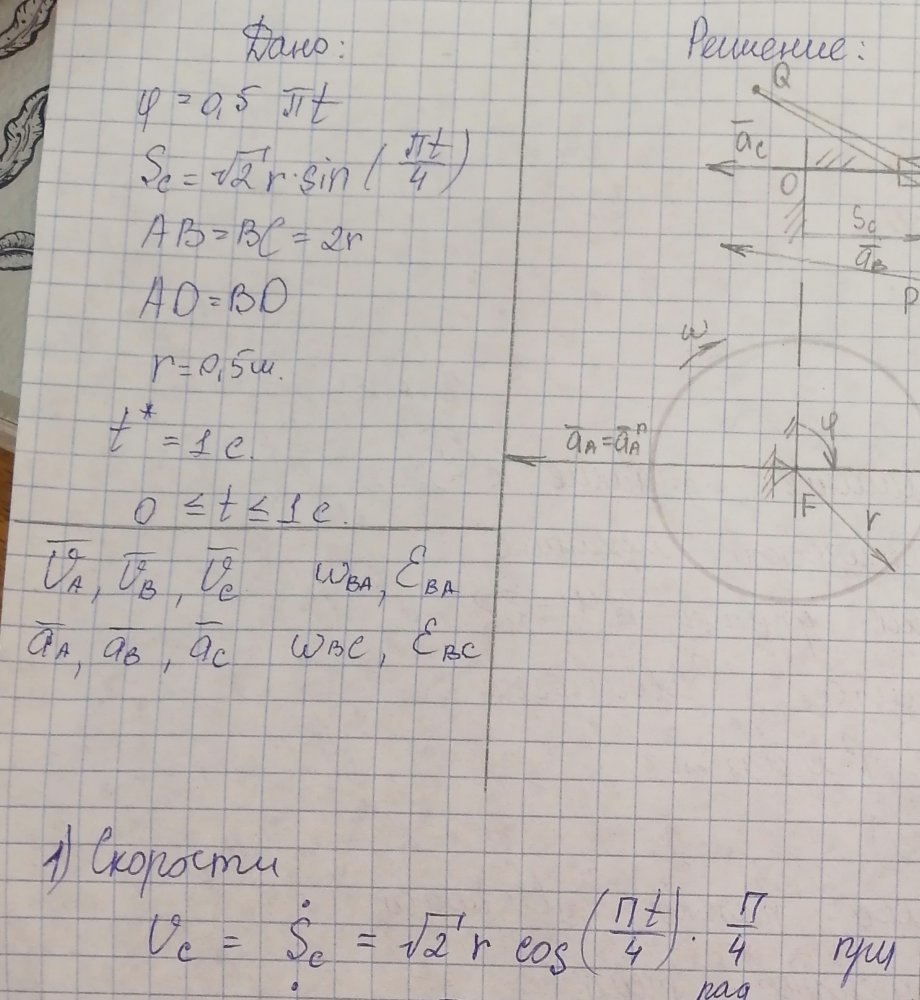 Дано:
φ = 0,5 πt
Sc = √2 r·sin(πt/4)
AB = BC = 2r
AD = BD
r = 0,5 м.
t* = 1 с.
0 ≤ t ≤ 1 с.
V̅A, V̅B, V̅C ωBA, εBA
a̅A, a̅B, a̅C ωBC, εBC
Решение:
Q
a̅C
O
Sc
a̅B
P
ω
a̅A = a̅Aⁿ
φ
F
r
1) Скорости
Vc = Ṡc = √2 r cos(πt/4)·π/4 при
рад